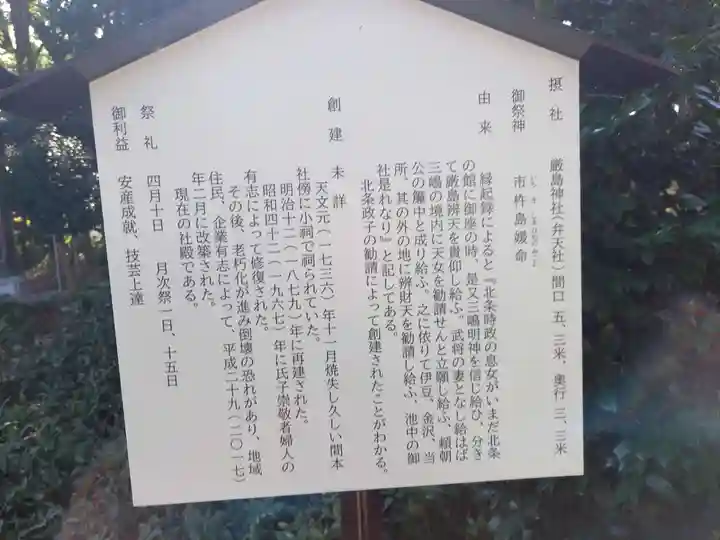 摂社　厳島神社（弁天社）間口　五、三米、奥行　三、三米
御祭神　市杵島媛命
いちきしまひめのみこと
由来　縁起録によると『北条時政の息女がいまだ北条
の館に御座の時、是又三嶋明神を信じ給ひ、分き
て厳島辨天を貴仰し給ふ。武将の妻となし給はば
三嶋の境内に天女を勧請せんと立願し給ふ、頼朝
公の簾中と成り給ふ。之に依りて伊豆、金沢、当
所、其の外の地に辨財天を勧請し給ふ、池中の御
社是れなり』と記してある。
北条政子の勧請によって創建されたことがわかる。
創建　未詳
天文元（一七三六）年十一月焼失し久しい間本
社傍に小祠で祀られていた。
明治十二（一八七九）年に再建された。
昭和四十二（一九六七）年に氏子崇敬者婦人の
有志によって修復された。
その後、老朽化が進み倒壊の恐れがあり、地域
住民、企業有志によって、平成二十九（二〇一七）
年二月に改築された。
現在の社殿である。
祭礼　四月十日　月次祭一日、十五日
御利益　安産成就、技芸上達